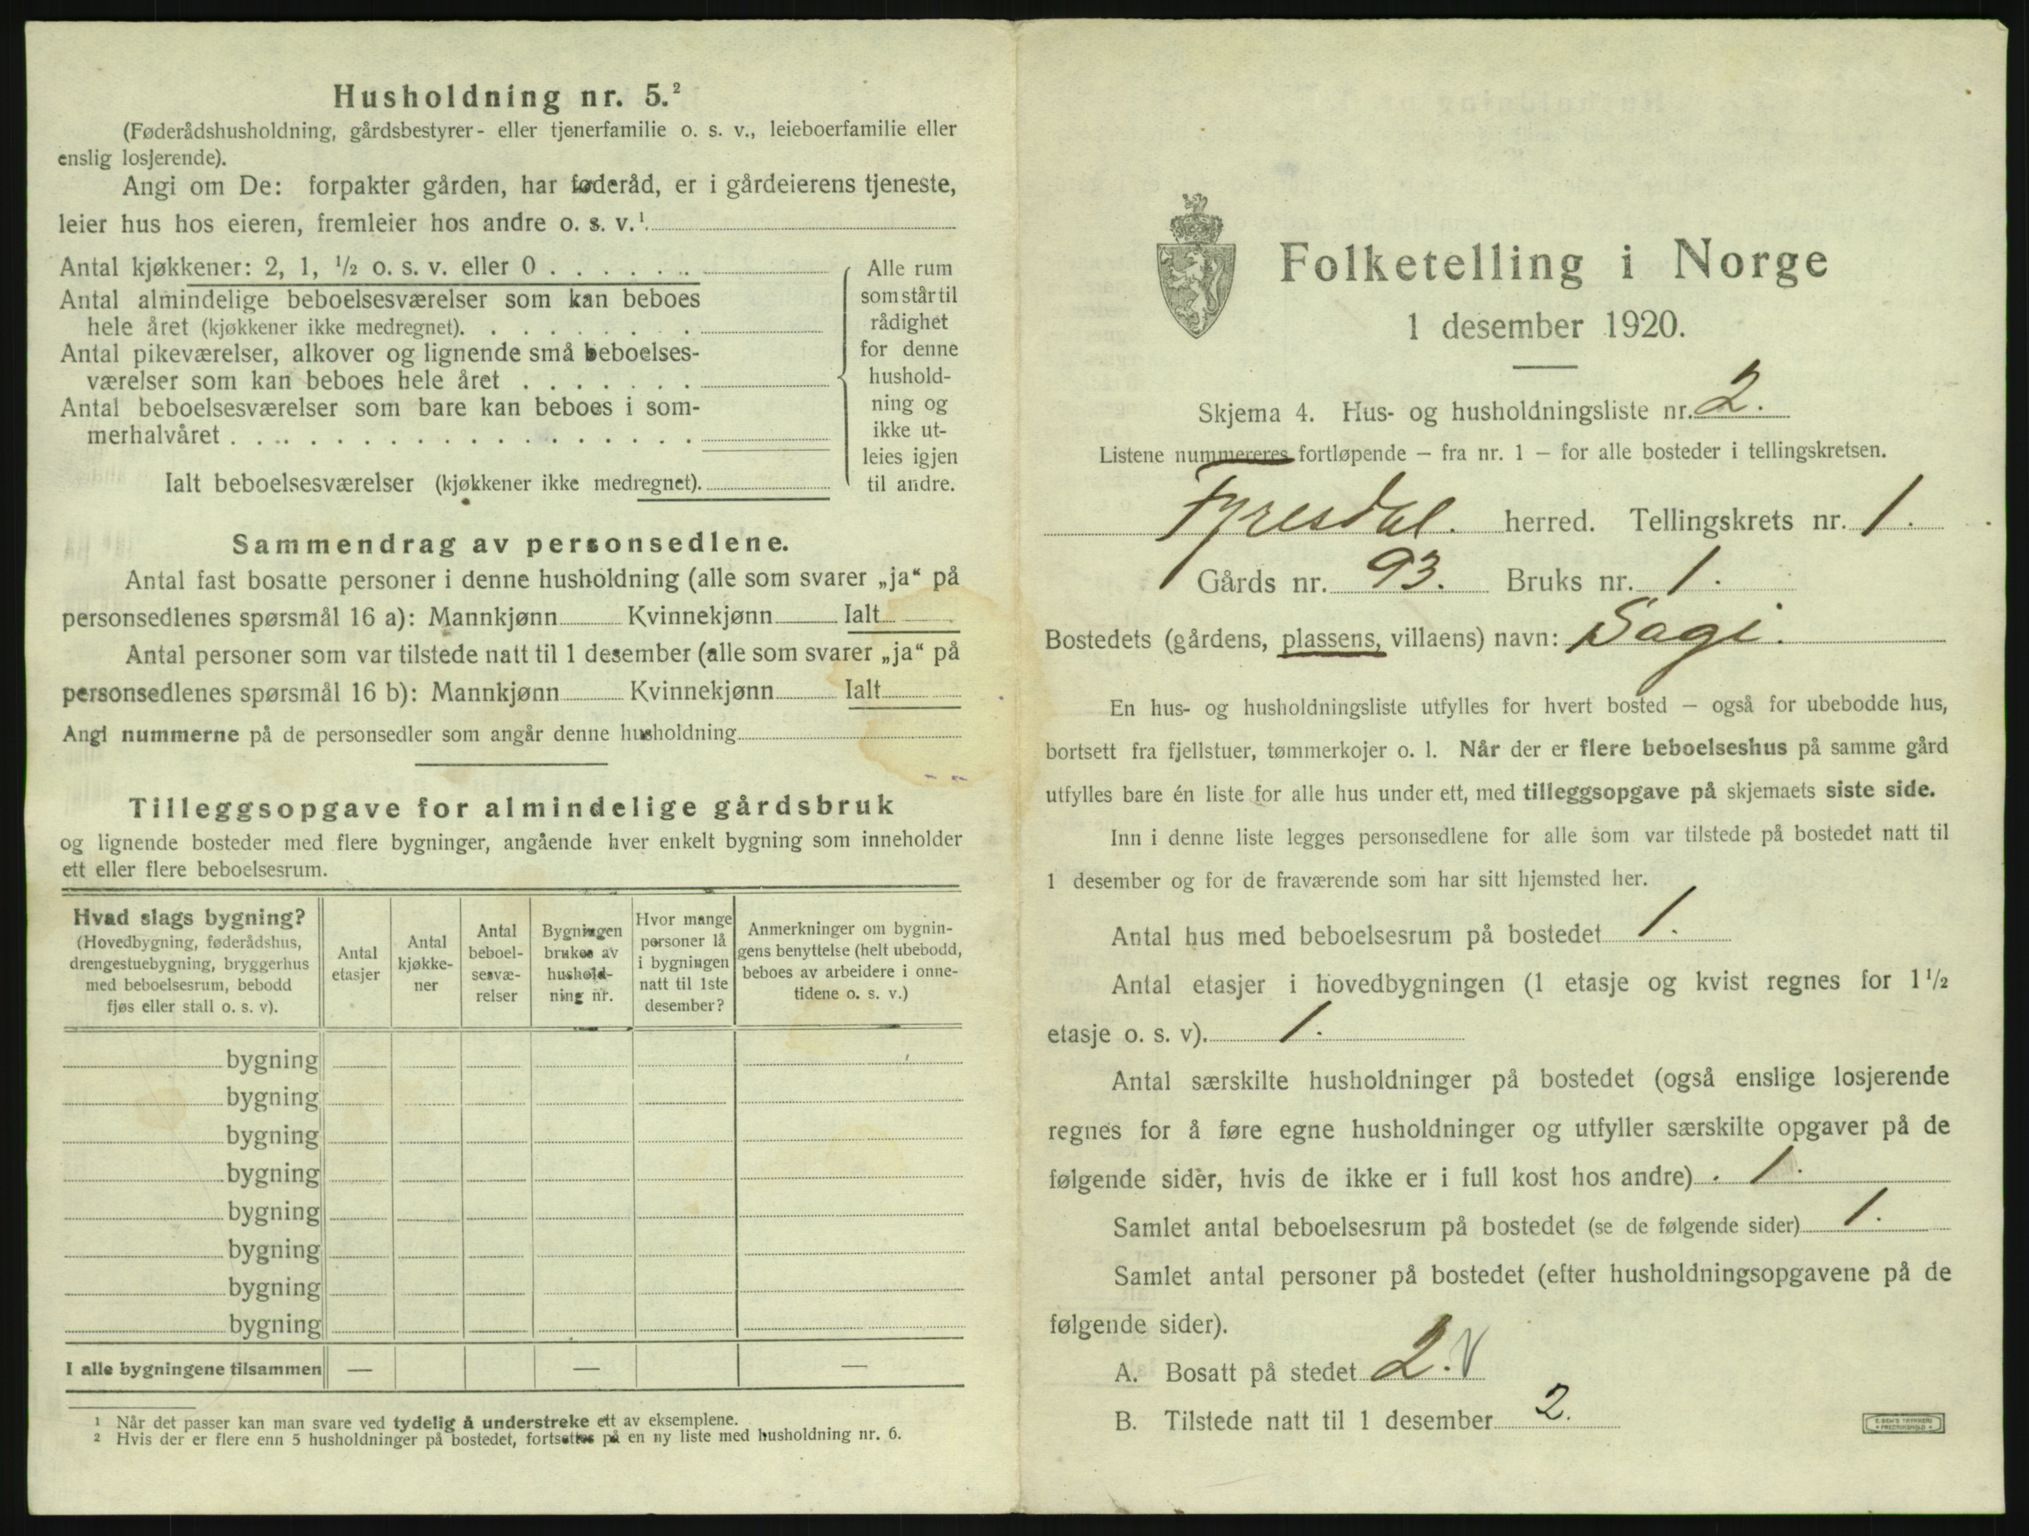 Husholdning nr. 5.²
(Føderådshusholdning, gårdsbestyrer- eller tjenerfamilie o. s. v., leieboerfamilie eller
enslig losjerende).
Angi om De: forpakter gården, har føderåd, er i gårdeierens tjeneste,
leier hus hos eieren, fremleier hos andre o. s. v.¹
Antal kjøkkener: 2, 1, ½ o. s. v. eller 0 . . . . . .
Antal almindelige beboelsesværelser som kan beboes
hele året (kjøkkener ikke medregnet). . . . . . . .
Antal pikeværelser, alkover og lignende små beboelses-
værelser som kan beboes hele året . . . . . . .
Antal beboelsesværelser som bare kan beboes i som-
merhalvåret . . . . . . . . . . . . . . . . . .
Ialt beboelsesværelser (kjøkkener ikke medregnet).
Alle rum
som står til
rådighet
for denne
hushold-
ning og
ikke ut-
leies igjen
til andre.
Sammendrag av personsedlene.
Antal fast bosatte personer i denne husholdning (alle som svarer „ja“ på
personsedlenes spørsmål 16 a): Mannkjønn Kvinnekjønn Ialt
Antal personer som var tilstede natt til 1 desember (alle som svarer „ja“ på
personsedlenes spørsmål 16 b): Mannkjønn Kvinnekjønn Ialt
Angi nummerne på de personsedler som angår denne husholdning
Tilleggsopgave for almindelige gårdsbruk
og lignende bosteder med flere bygninger, angående hver enkelt bygning som inneholder
ett eller flere beboelsesrum.
Hvad slags bygning?
(Hovedbygning, føderådshus,
drengestuebygning, bryggerhus
med beboelsesrum, bebodd
fjøs eller stall o. s. v).
Antal
etasjer
Antal
kjøkke-
ner
Antal
beboel-
sesvæ-
relser
Bygningen
brukes av
hushold-
ning nr.
Hvor mange
personer lå
i bygningen
natt til 1ste
desember?
Anmerkninger om bygnin-
gens benyttelse (helt ubebodd,
beboes av arbeidere i onne-
tidene o. s. v.)
bygning
bygning
bygning
bygning
bygning
bygning
bygning
bygning
I alle bygningene tilsammen — — —
¹ Når det passer kan man svare ved tydelig å understreke ett av eksemplene.
² Hvis der er flere enn 5 husholdninger på bostedet, fortsettes på en ny liste med husholdning nr. 6.
Folketelling i Norge
1 desember 1920.
Skjema 4. Hus- og husholdningsliste nr. 2.
Listene nummereres fortløpende – fra nr. 1 – for alle bosteder i tellingskretsen.
Fyresdal. herred. Tellingskrets nr. 1.
Gårds nr. 93. Bruks nr. 1.
Bostedets (gårdens, plassens, villaens) navn: Sagi.
En hus- og husholdningsliste utfylles for hvert bosted – også for ubebodde hus,
bortsett fra fjellstuer, tømmerkojer o. l. Når der er flere beboelseshus på samme gård
utfylles bare én liste for alle hus under ett, med tilleggsopgave på skjemaets siste side.
Inn i denne liste legges personsedlene for alle som var tilstede på bostedet natt til
1 desember og for de fraværende som har sitt hjemsted her.
Antal hus med beboelsesrum på bostedet 1.
Antal etasjer i hovedbygningen (1 etasje og kvist regnes for 1½
etasje o. s. v). 1.
Antal særskilte husholdninger på bostedet (også enslige losjerende
regnes for å føre egne husholdninger og utfyller særskilte opgaver på de
følgende sider, hvis de ikke er i full kost hos andre) . 1.
Samlet antal beboelsesrum på bostedet (se de følgende sider) 1.
Samlet antal personer på bostedet (efter husholdningsopgavene på de
følgende sider).
A. Bosatt på stedet 2. V
B. Tilstede natt til 1 desember 2.